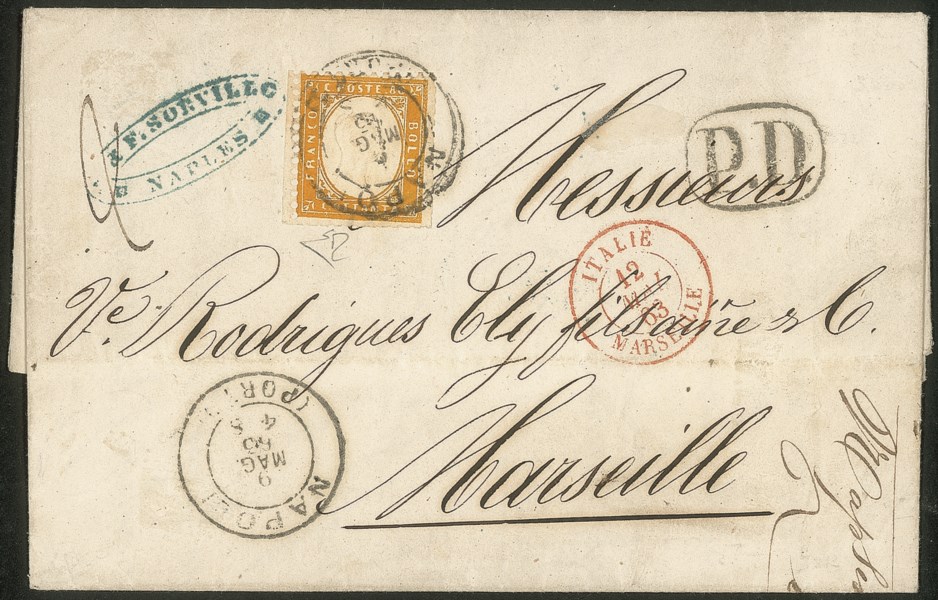 F. SORVILLO
NAPLES
C. POSTE
FRANCO
BOLLO
MAG
63
P.D
Messieurs
Ve. Rodrigues Ely fils aîné & C.
ITALIE
12
63
MARSEILLE
Marseille
NAPOLI
(PORTO)
4 S
63
MAG
9